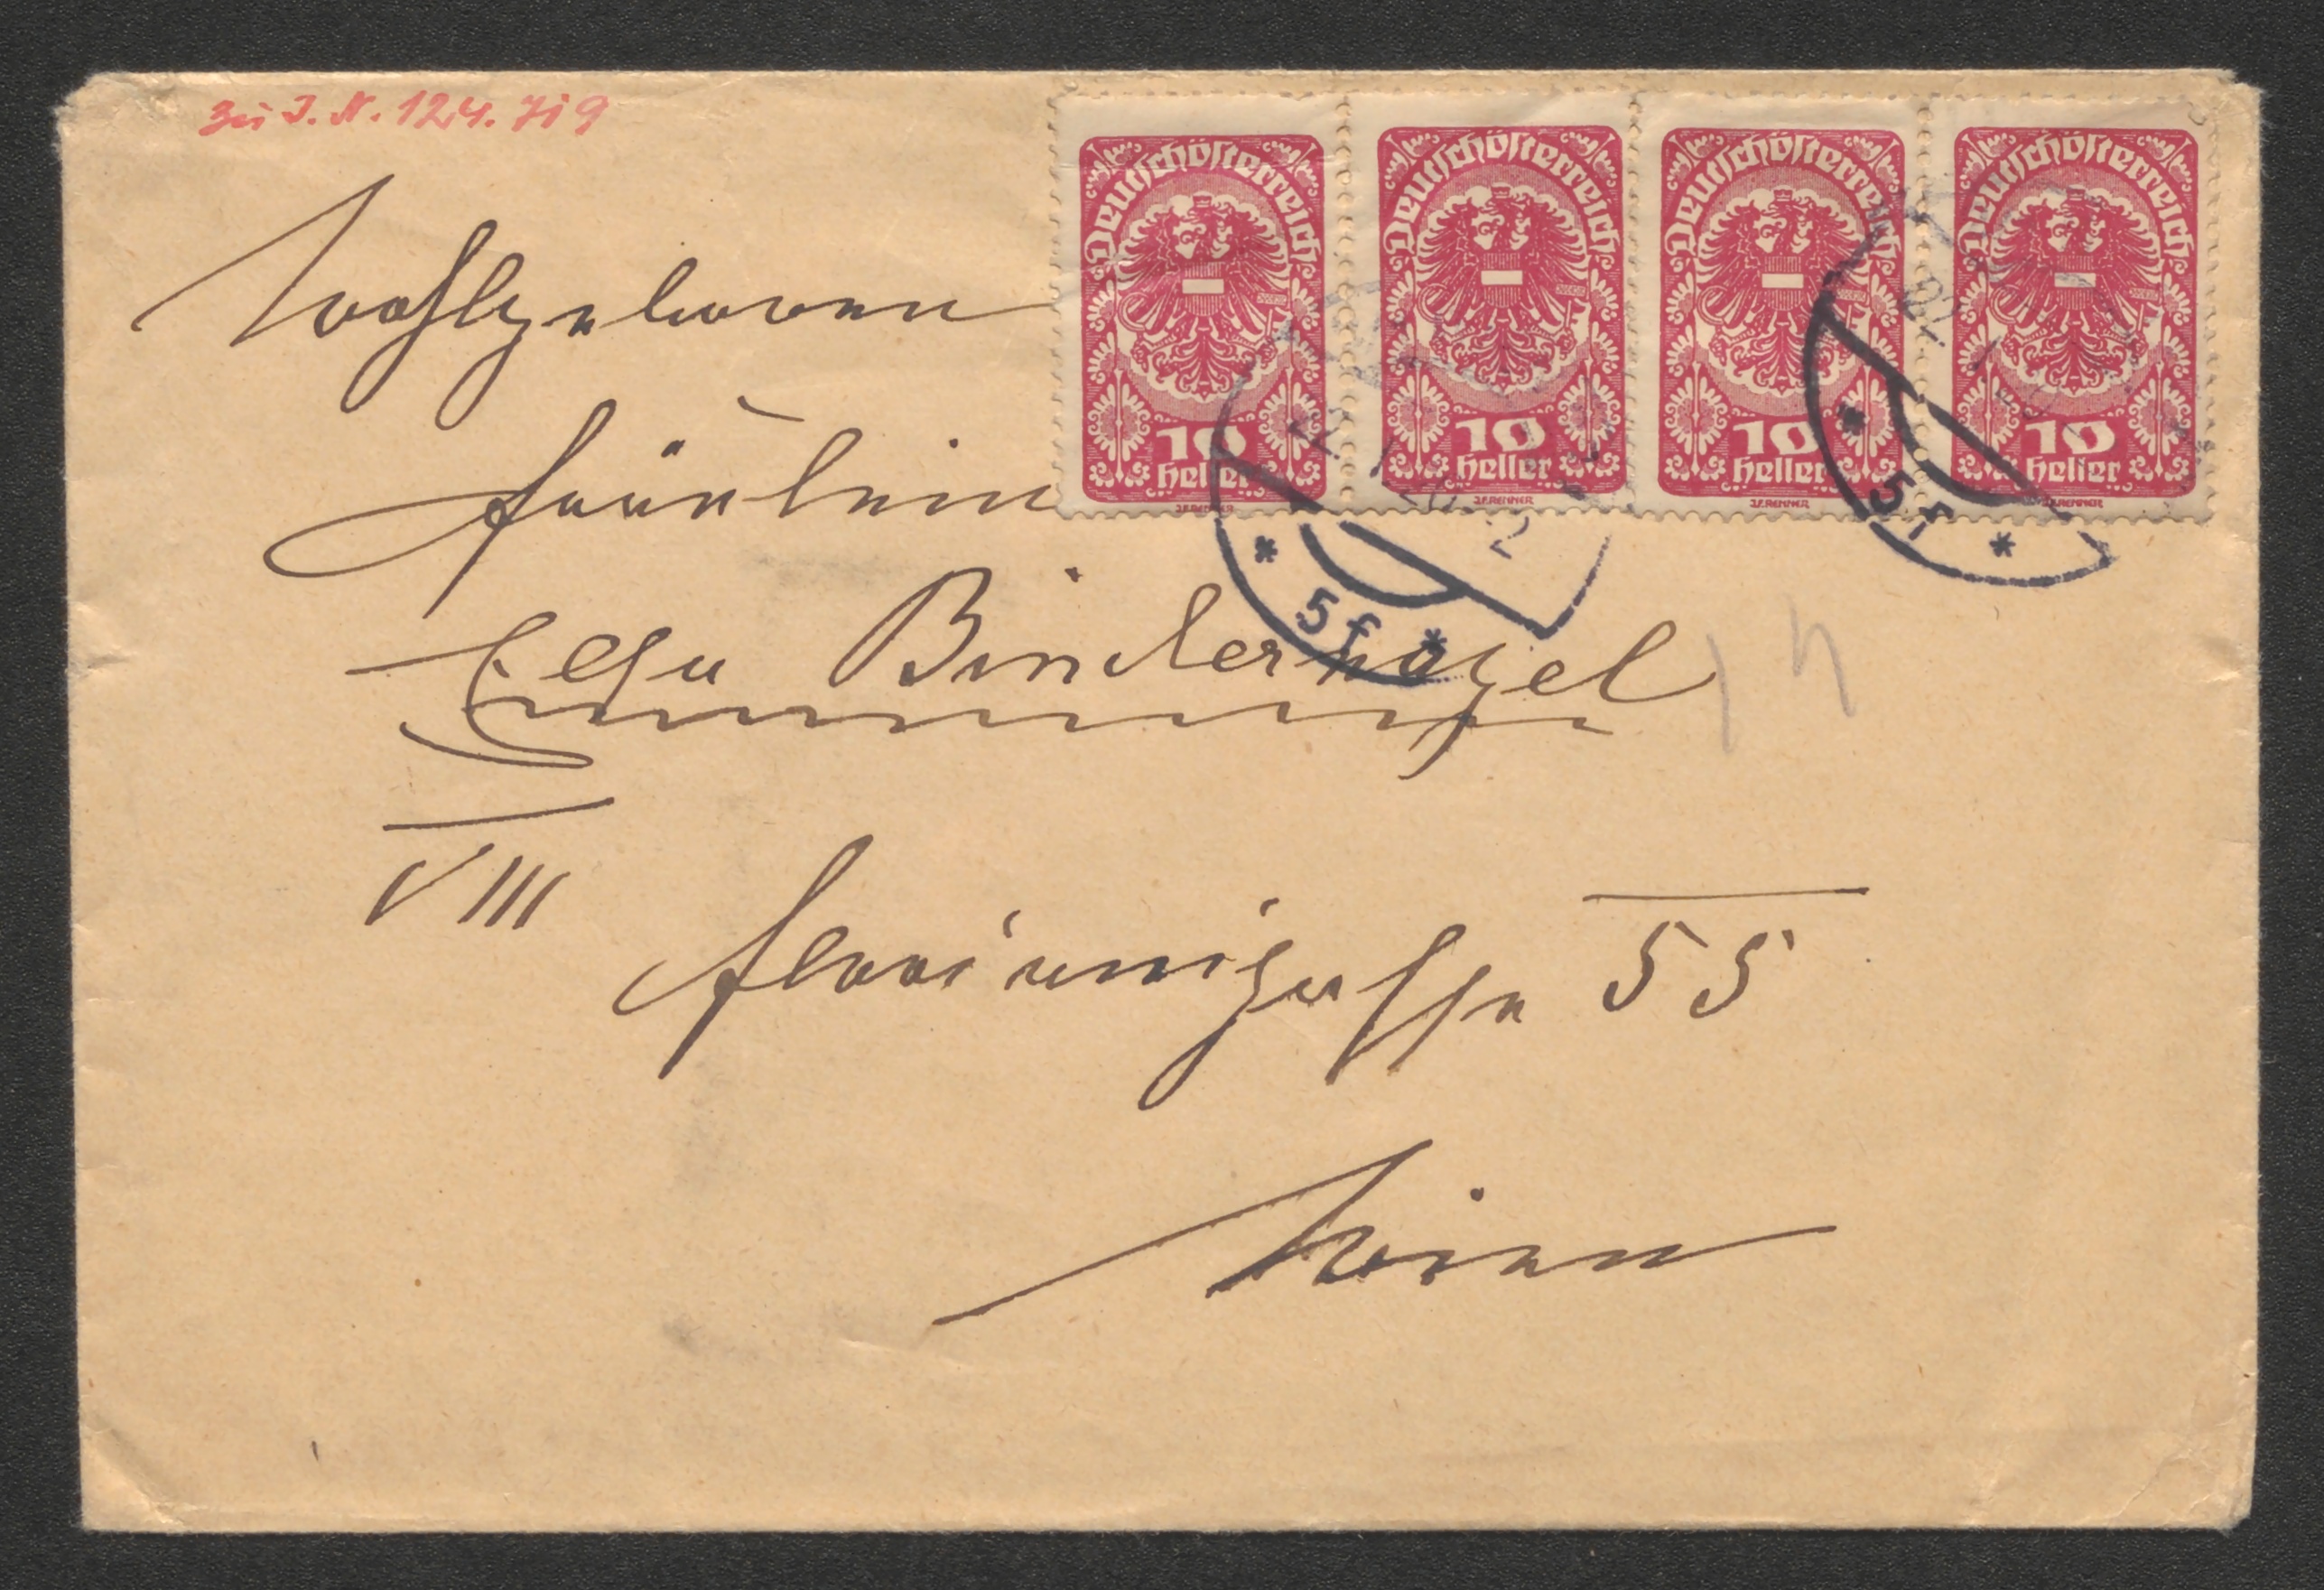 Zu I. N. 124.719
Deutschösterreich Deutschösterreich Deutschösterreich Deutschösterreich
10 10 10 10
Heller Heller Heller Heller
J.F.RENNER J.F.RENNER J.F.RENNER J.F.RENNER
Wohlgeboren
Fräulein
* 5f *
* 5f *
Elsa Bindervogel
VIII
Florianigasse 55
Wien